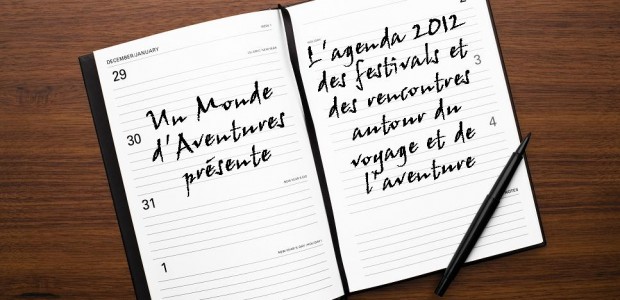 DECEMBER/JANUARY
29
Un Monde
30
d'Aventures
présente
31
1
2
L'agenda 2012
des festivals et
3
des rencontres
autour du
4
voyage et de
l'aventure
NOTES